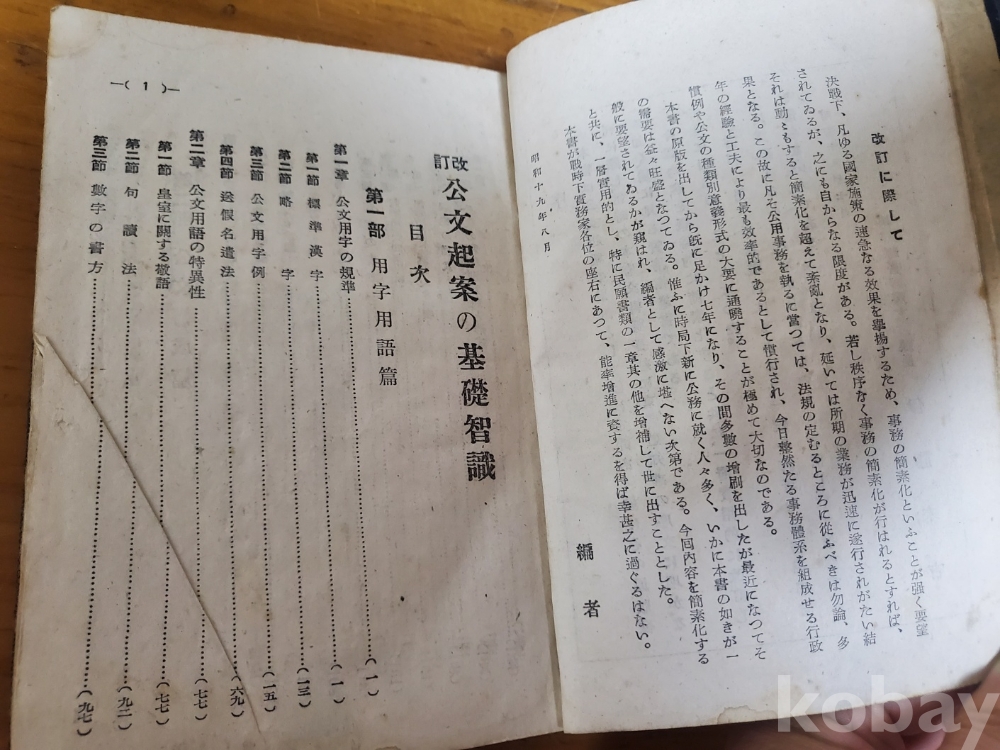 改訂に際して
決戰下、凡ゆる國家施策の速急なる效果を擧揚するため、事務の簡素化といふことが强く要望
されてゐるが、之にも自からなる限度がある。若し秩序なく事務の簡素化が行はれるとすれば、
それは動ともすると簡素化を超えて紊亂となり、延いては所期の業務が迅速に遂行されがたい結
果となる。この故に凡そ公用事務を執るに當つては、法規の定むるところに從ふべきは勿論、多
年の經驗と工夫により最も效率的であるとして慣行され、今日整然たる事務體系を組成せる行政
慣例や公文の種類別意義形式の大要に通曉することが極めて大切なのである。
本書の原版を出してから既に足かけ七年になり、その間多數の增刷を出したが最近になつてそ
の需要は益々旺盛となつてゐる。惟ふに時局下新に公務に就く人々多く、いかに本書の如きが一
般に要望されてゐるかが窺はれ、編者として感激に堪へない次第である。今囘內容を簡素化する
と共に、一層實用的とし、特に民願書類の一章其の他を增補して世に出すこととした。
本書が戰時下實務家各位の座右にあつて、能率增進に資するを得ば幸甚之に過ぐるはない。
昭和十九年八月
編者
改訂 公文起案の基礎智識
目次
第一部 用字用語篇
第一章 公文用字の規準……(一)
第一節 標準漢字……(一)
第二節 略字……(一三)
第三節 公文用字例……(一五)
第四節 送假名遣法……(六九)
第二章 公文用語の特異性……(七七)
第一節 皇室に關する敬語……(七七)
第二節 句讀法……(九二)
第三節 數字の書方……(九七)
—( 1 )—
kobay